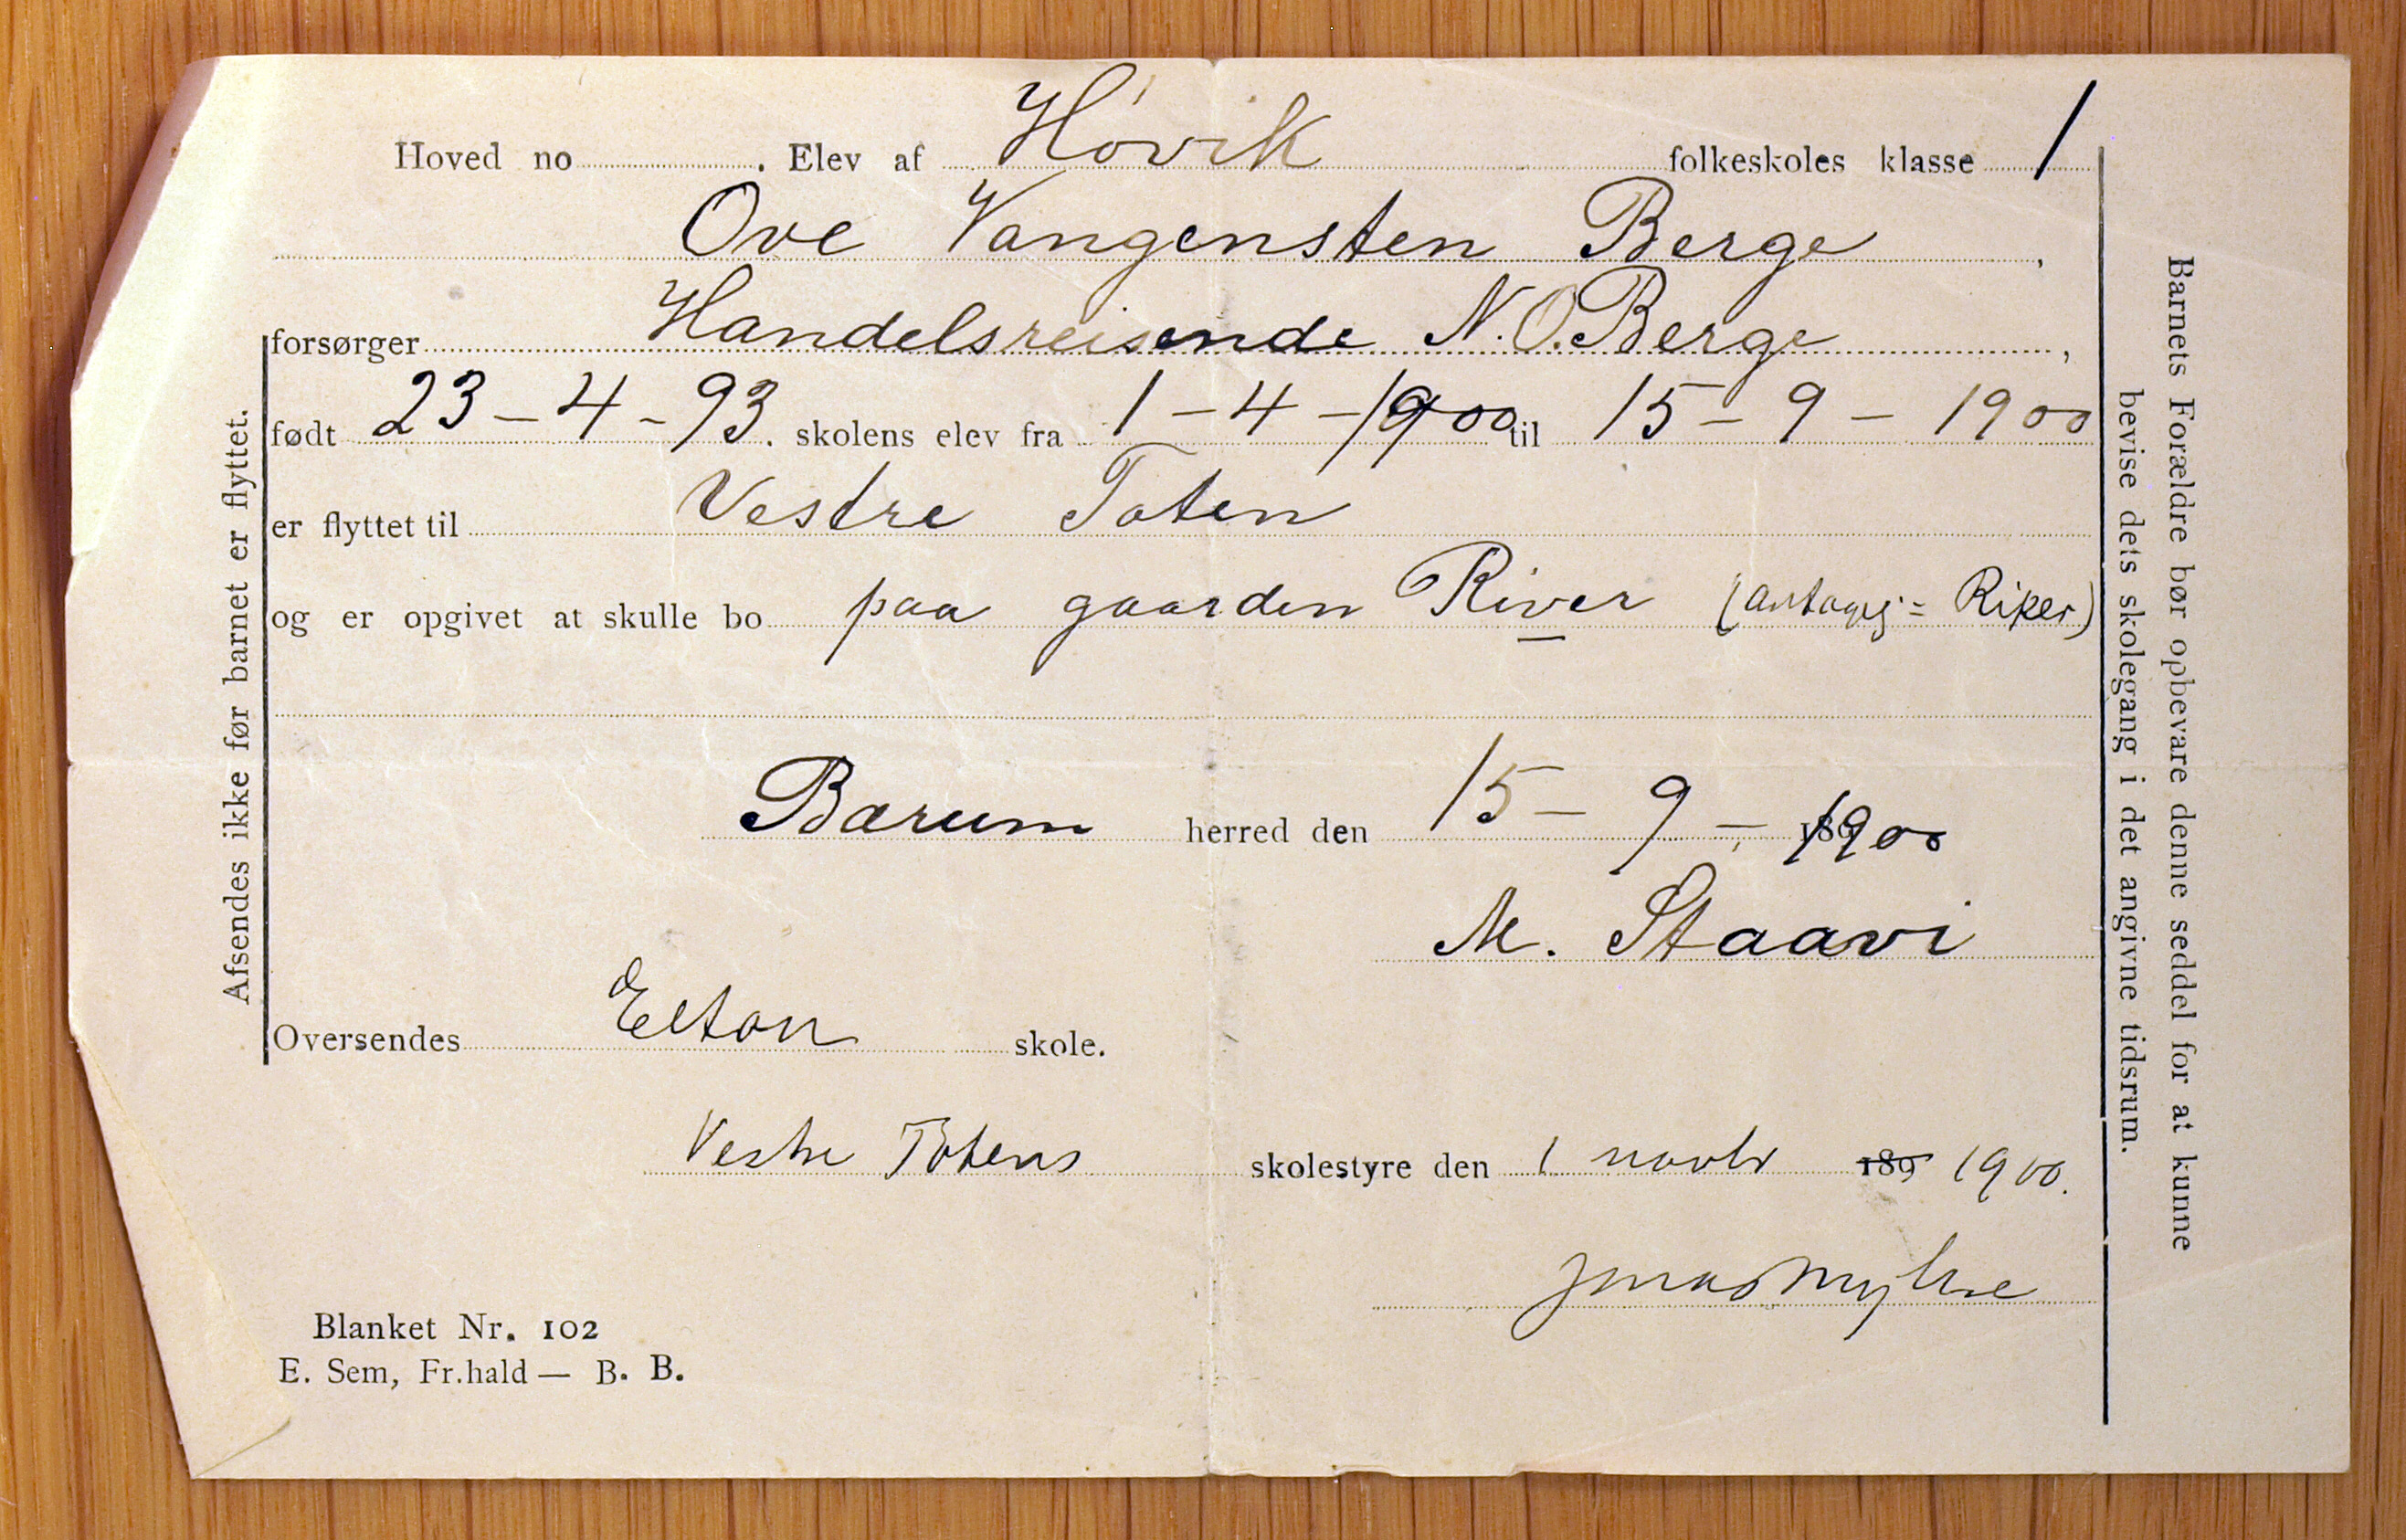 Hoved no . Elev af Hövik folkeskoles klasse 1
Ove Vangensten Berge ,
forsørger Handelsreisende N. O. Berge ,
født 23 - 4 - 93. skolens elev fra 1 - 4 - 1900 til 15 - 9 - 1900
er flyttet til Vestre Toten
og er opgivet at skulle bo paa gaarden River (antagej = Riper)
Bærum herred den 15 - 9 - 1900
M. Staavi
Oversendes Elton skole.
Vestre Totens skolestyre den 1 novbr 189 1900.
Blanket Nr. 102
E. Sem, Fr.hald — B. B.
Afsendes ikke før barnet er flyttet.
Barnets Forældre bør opbevare denne seddel for at kunne
bevise dets skolegang i det angivne tidsrum.